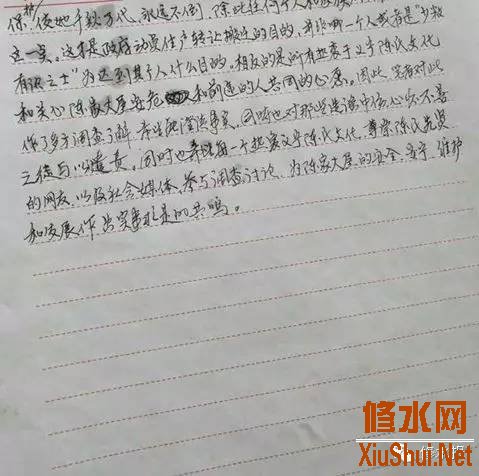 保护, 使她千秋万代、永远不倒, 除此任何个人和家族
这一吴。这才是政府动员住户转让搬迁的目的, 并非哪一个人或者是"少数
有识之士"为达到某个人什么目的, 相反的是所有热衷于义宁陈氏文化
和关心陈家大屋安危和前途的人共同的心愿。因此, 笔者对此
作了多方调查了解, 弄清事实, 同时也对那些造谣中伤心怀不善
之徒与以谴责。同时也希望每一个热衷义宁陈氏文化、尊崇陈氏先贤
的网友, 以及社会媒体, 参与调查讨论, 为陈家大屋的安全、维护
和发展作出实事求是的共鸣。
修水网
XiuShui.Net